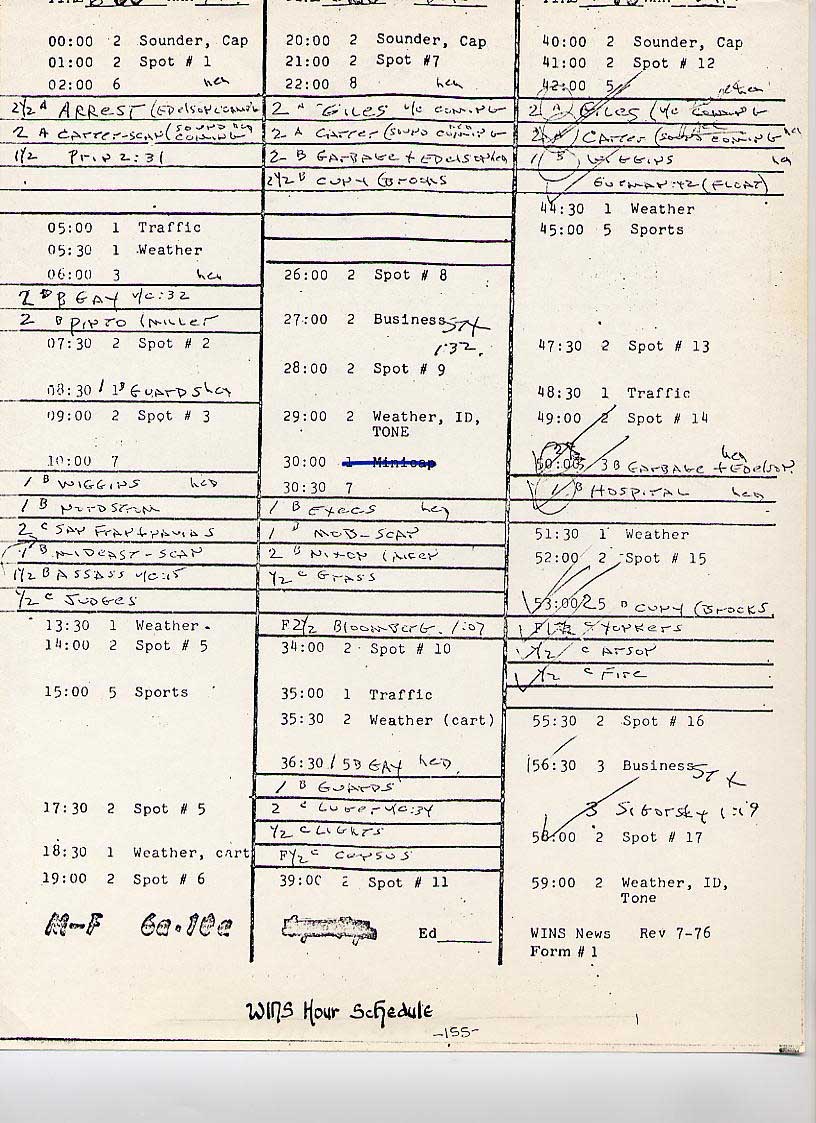 00:00 2 Sounder, Cap
01:00 2 Spot # 1
02:00 6 hed
2½ A ARREST (EDELSON COMING
2 A CARTER-SCAN (SOUND COMING
1½ PRIN 2:31
05:00 1 Traffic
05:30 1 Weather
06:00 3 hed
2 B GAY V/C:32
2 B PINTO (MILLER
07:30 2 Spot # 2
08:30 / 1B GUARDS hed
09:00 2 Spot # 3
10:00 7
1 B WIGGINS hed
1 B NURDSTRM
2 C SAN FRAN + NAVIAS
1 B MIDEAST-SCAN
1½ B ASSASS V/C:15
½ C JUDGES
13:30 1 Weather
14:00 2 Spot # 5
15:00 5 Sports
17:30 2 Spot # 5
18:30 1 Weather, cart
19:00 2 Spot # 6
M-F 6a-10a
20:00 2 Sounder, Cap
21:00 2 Spot #7
22:00 8 hed
2 A GILES V/C COMING
2 A CARTER (SOUND COMING
2 B GARBAGE + EDELSON hed
2½ B CUNY (BROCKS
26:00 2 Spot # 8
27:00 2 Business STX
1:32.
28:00 2 Spot # 9
29:00 2 Weather, ID,
TONE
30:00 1 Minicap
30:30 7
1 B EXECS hed
1 B MOB-SCAN
2 B NIXON (
½ C GRASS
F2½ BLOOMBERG. 1:07
34:00 2 Spot # 10
35:00 1 Traffic
35:30 2 Weather (cart)
36:30 / 5B GAY hed
1 B GUARDS
2 C LUGER V/C:34
½ C LIGHTS
F½ C
39:00 2 Spot # 11
Ed
40:00 2 Sounder, Cap
41:00 2 Spot # 12
42:00 5
2 A GILES (V/C COMING
2 A CARTER (SOUND COMING hed
1 B WIGGINS hed
GUTMAN :42 (FLOAT)
44:30 1 Weather
45:00 5 Sports
47:30 2 Spot # 13
48:30 1 Traffic
49:00 2 Spot # 14
50:00 3B GARBAGE + EDELSON hed
1 B HOSPITAL hed
51:30 1 Weather
52:00 2 Spot # 15
53:00 25 B CUNY (BROCKS
YONKERS
1½ C ARSON
½ C FIRE
55:30 2 Spot # 16
56:30 3 Business STX
3 SIKORSKY 1:19
58:00 2 Spot # 17
59:00 2 Weather, ID,
Tone
WINS News Rev 7-76
Form # 1
WINS Hour Schedule
-155-